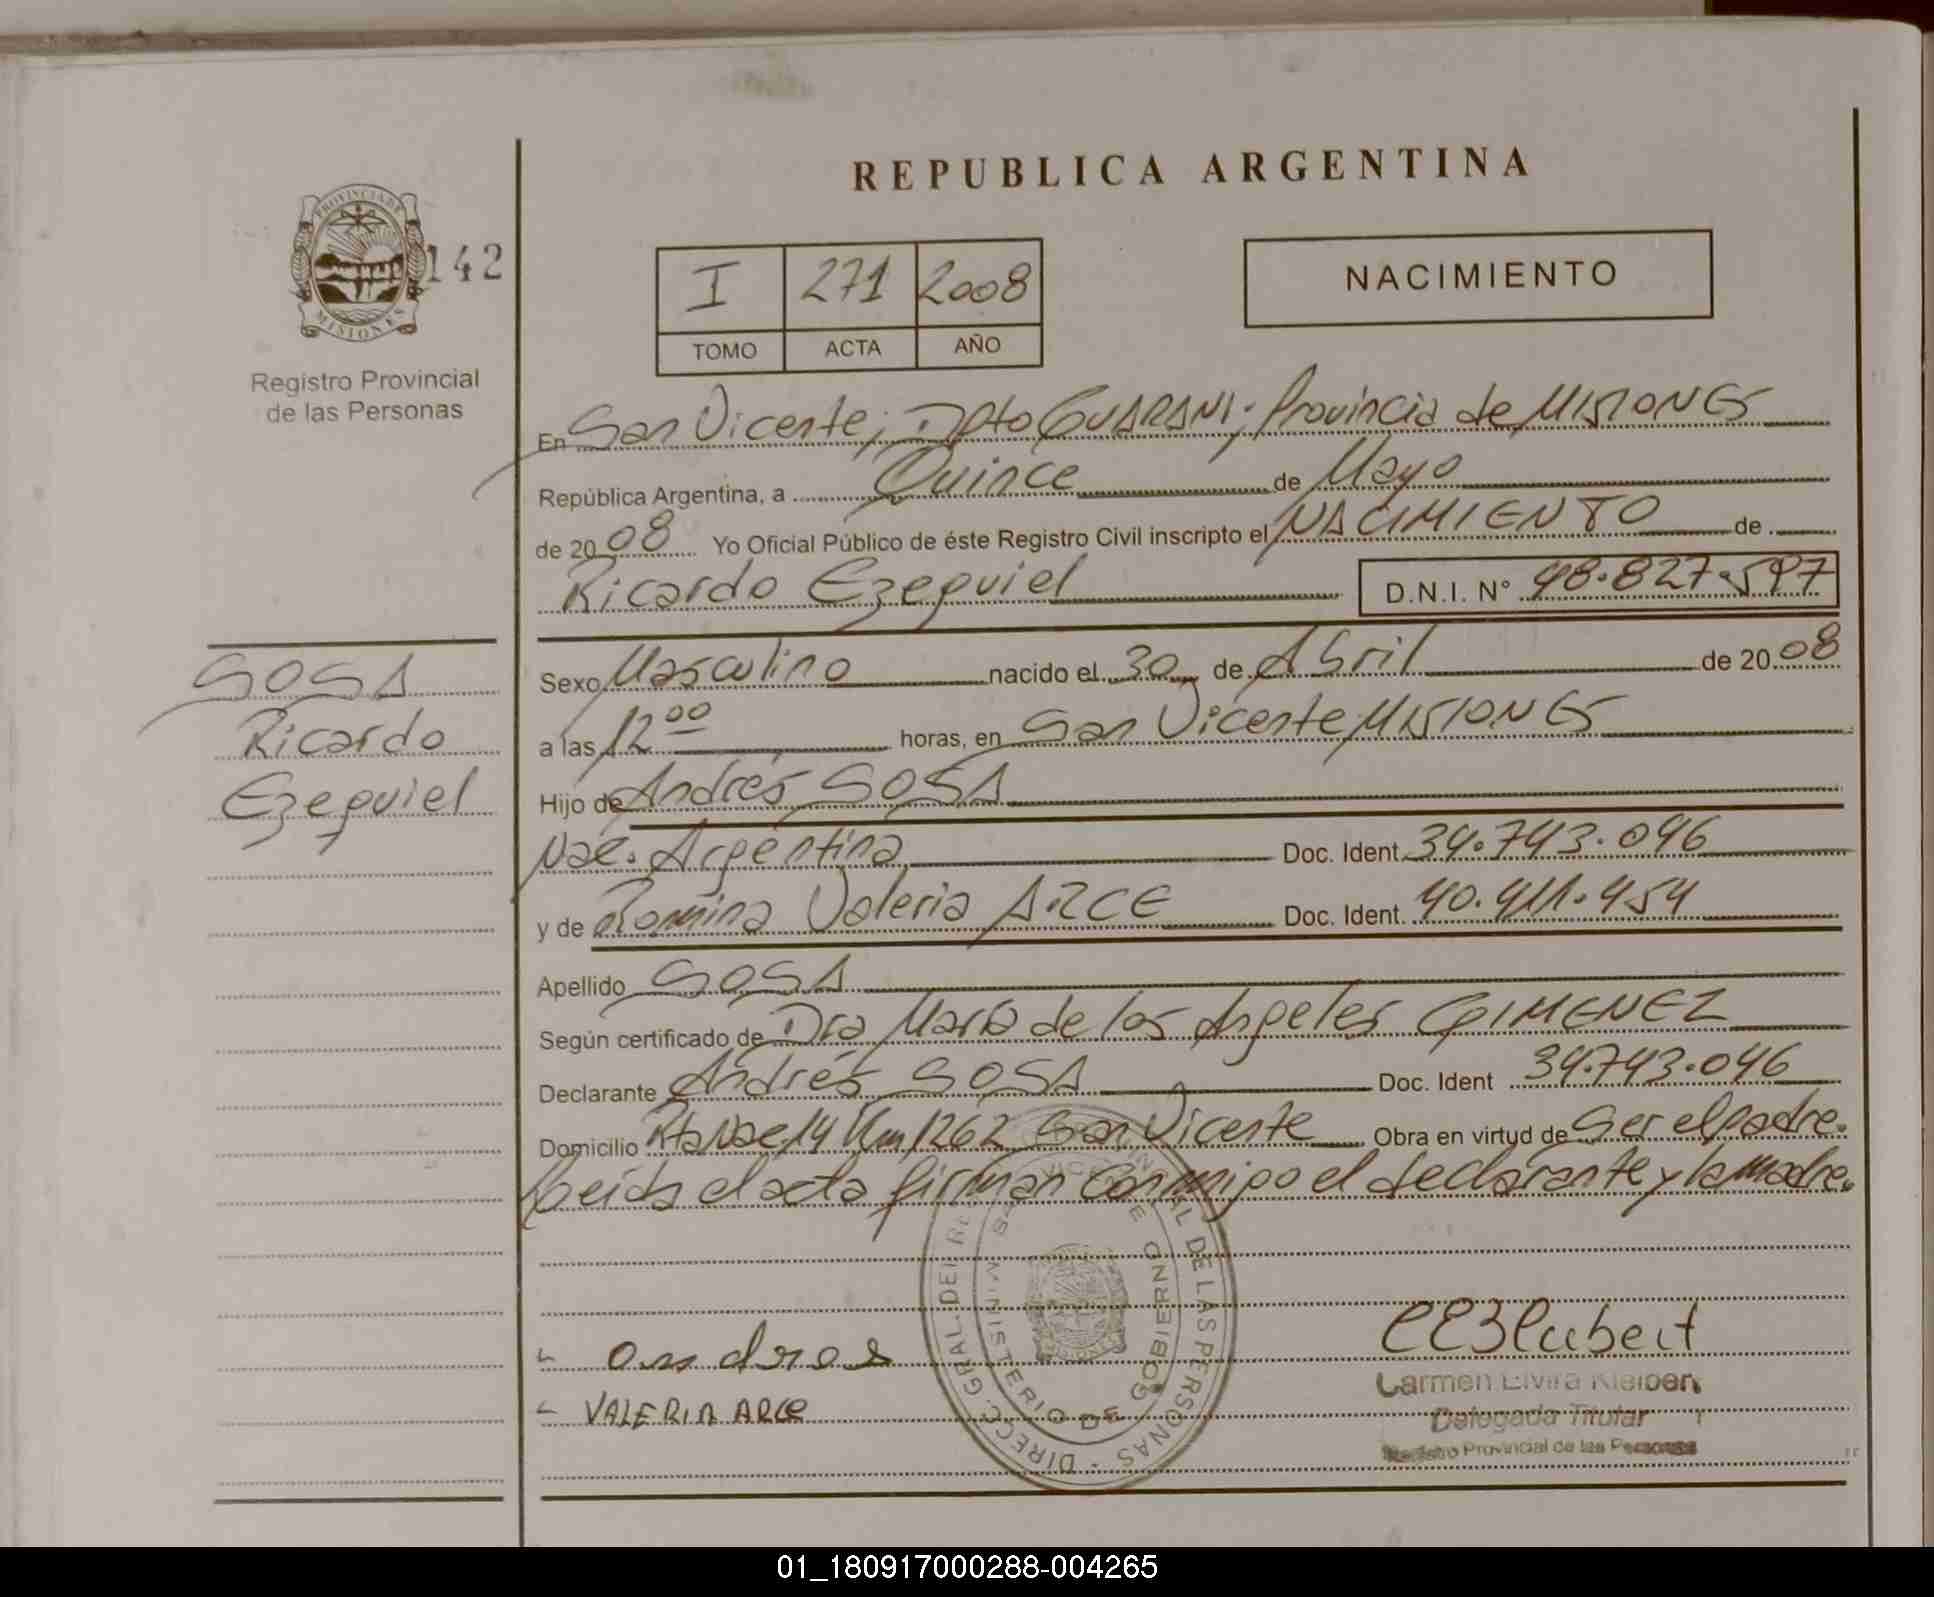 REPUBLICA ARGENTINA
PROVINCIA DE
MISIONES
142
Registro Provincial
de las Personas
I 271 2008
TOMO ACTA AÑO
NACIMIENTO
En San Vicente; Dpto GUARANI; Provincia de MISIONES
República Argentina, a Quince de Mayo
de 2008 Yo Oficial Público de éste Registro Civil inscripto el NACIMIENTO de
Ricardo Ezequiel D.N.I. Nº 48.827.597
SOSA
Ricardo
Ezequiel
Sexo Masculino nacido el 30 de Abril de 2008
a las 12 00 horas, en San Vicente MISIONES
Hijo de Andrés SOSA
Nac. Argentina Doc. Ident 34.743.046
y de Romina Valeria ARCE Doc. Ident. 40.411.454
Apellido SOSA
Según certificado de Dra María de los Angeles GIMENEZ
Declarante Andrés SOSA Doc. Ident 34.743.046
Domicilio Rta Nac 14 Km 1262 San Vicente Obra en virtud de Ser el padre.
Leida el acta firman conmigo el declarante y la madre.
DIRECC. GRAL. DEL DE LAS PERSONAS
MINISTERIO DE GOBIERNO
VALERIA ARCE
Carmen Elvira
Delegada Titular
Registro Provincial de las Personas
01_180917000288-004265